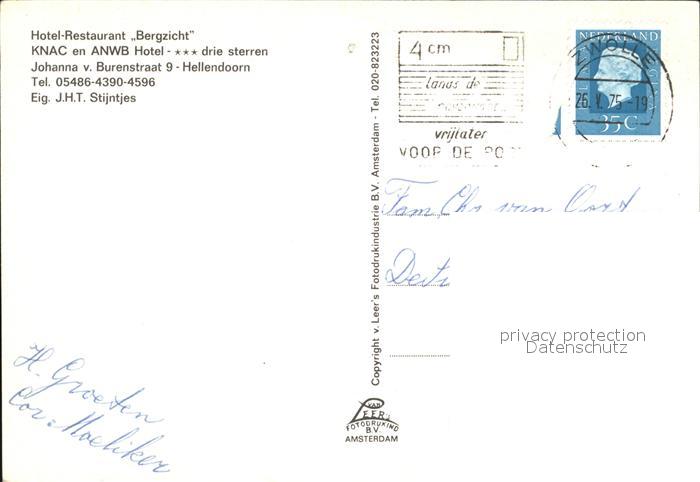 Hotel-Restaurant „Bergzicht"
KNAC en ANWB Hotel - *** drie sterren
Johanna v. Burenstraat 9 - Hellendoorn
Tel. 05486-4390-4596
Eig. J.H.T. Stijntjes
Copyright v. Leer's Fotodrukindustrie B.V. Amsterdam - Tel. 020-823223
4 cm
langs de
vrijlaten
VOOR DE
ZWOLLE
26. V. 75 -19
NEDERLAND
35C
Fam Chr van Oort
privacy protection
Datenschutz
H. Groeten
Cor. Moeliker
VAN
LEER's
FOTODRUKIND
B.V.
AMSTERDAM